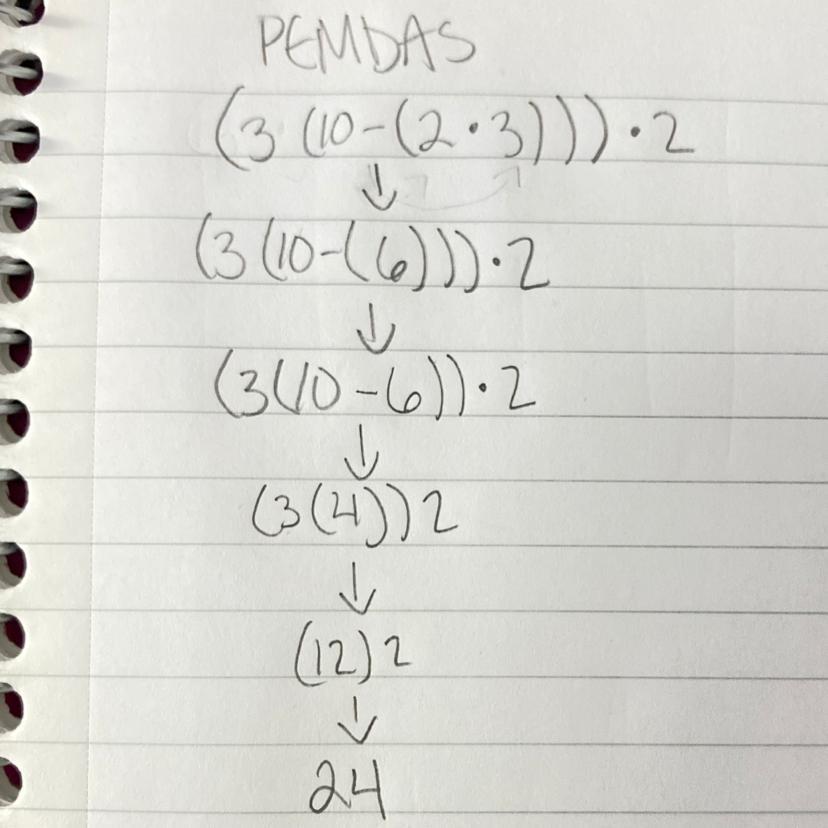 PEMDAS
(3 (10-(2·3)))·2
↓
(3(10-(6)))·2
↓
(3(10-6))·2
↓
(3(4))2
↓
(12)2
↓
24